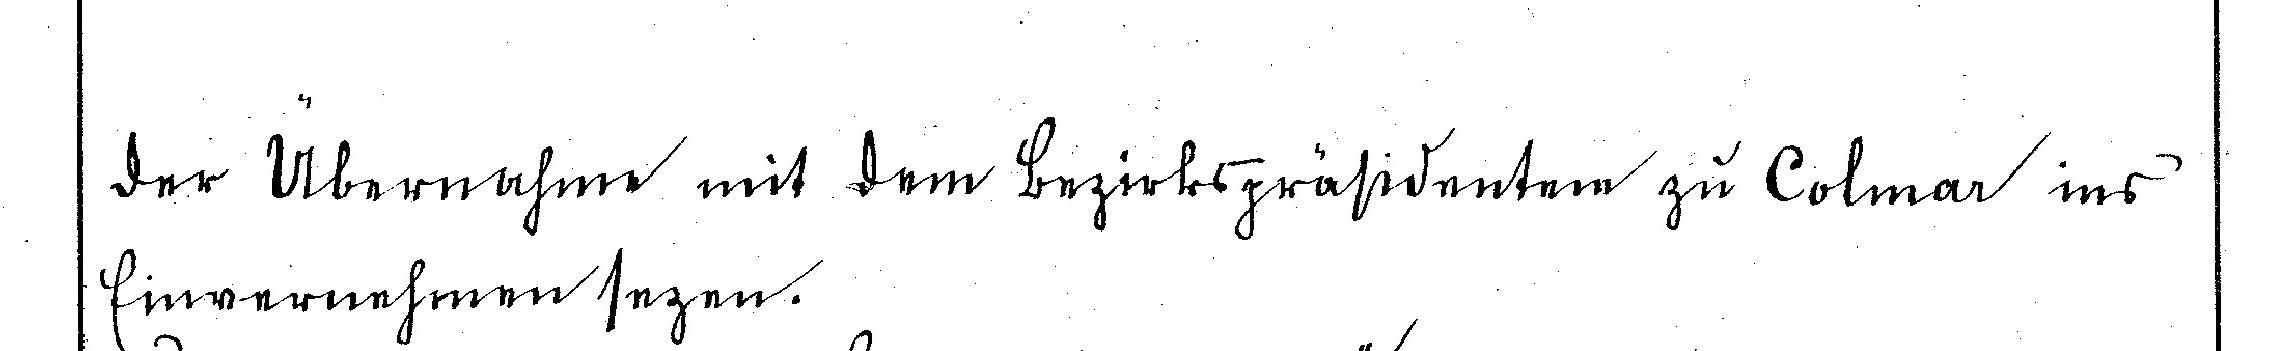 der Übernahme mit dem Bezirkspräsidenten zu Colmar ins
Einvernehmen sezen.